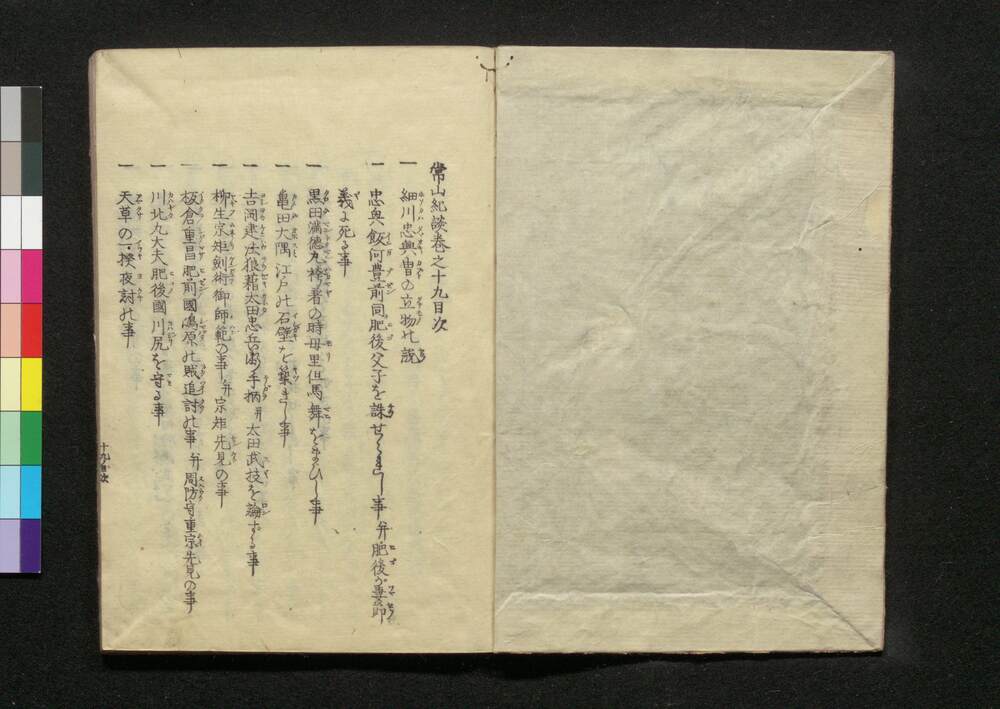 常山紀談巻之十九目次
一 細川忠興冑の立物の説
一 忠興飯河豊前同肥後父子を誅せられし事 并 肥後が妻節
義に死る事
一 黒田満徳丸袴着の時母里但馬舞をまひし事
一 亀田大隅江戸の石壁を築きし事
一 吉岡建法狼藉太田忠兵衛手柄 并 太田武技を論ずる事
一 柳生宗矩剣術御師範の事 并 宗矩先見の事
一 板倉重昌肥前國嶋原の賊追討の事 并 周防守重宗先見の事
一 川北九大夫肥後國川尻を守る事
一 天草の一揆夜討の事
十九目次